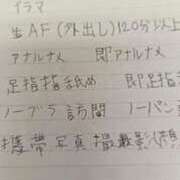 イラマ
生AF(外出し)120分以上
アナルナメ 即アナルナメ
足指指舐め 即足指
ノーブラ訪問 ノーパン
携帯写真撮影